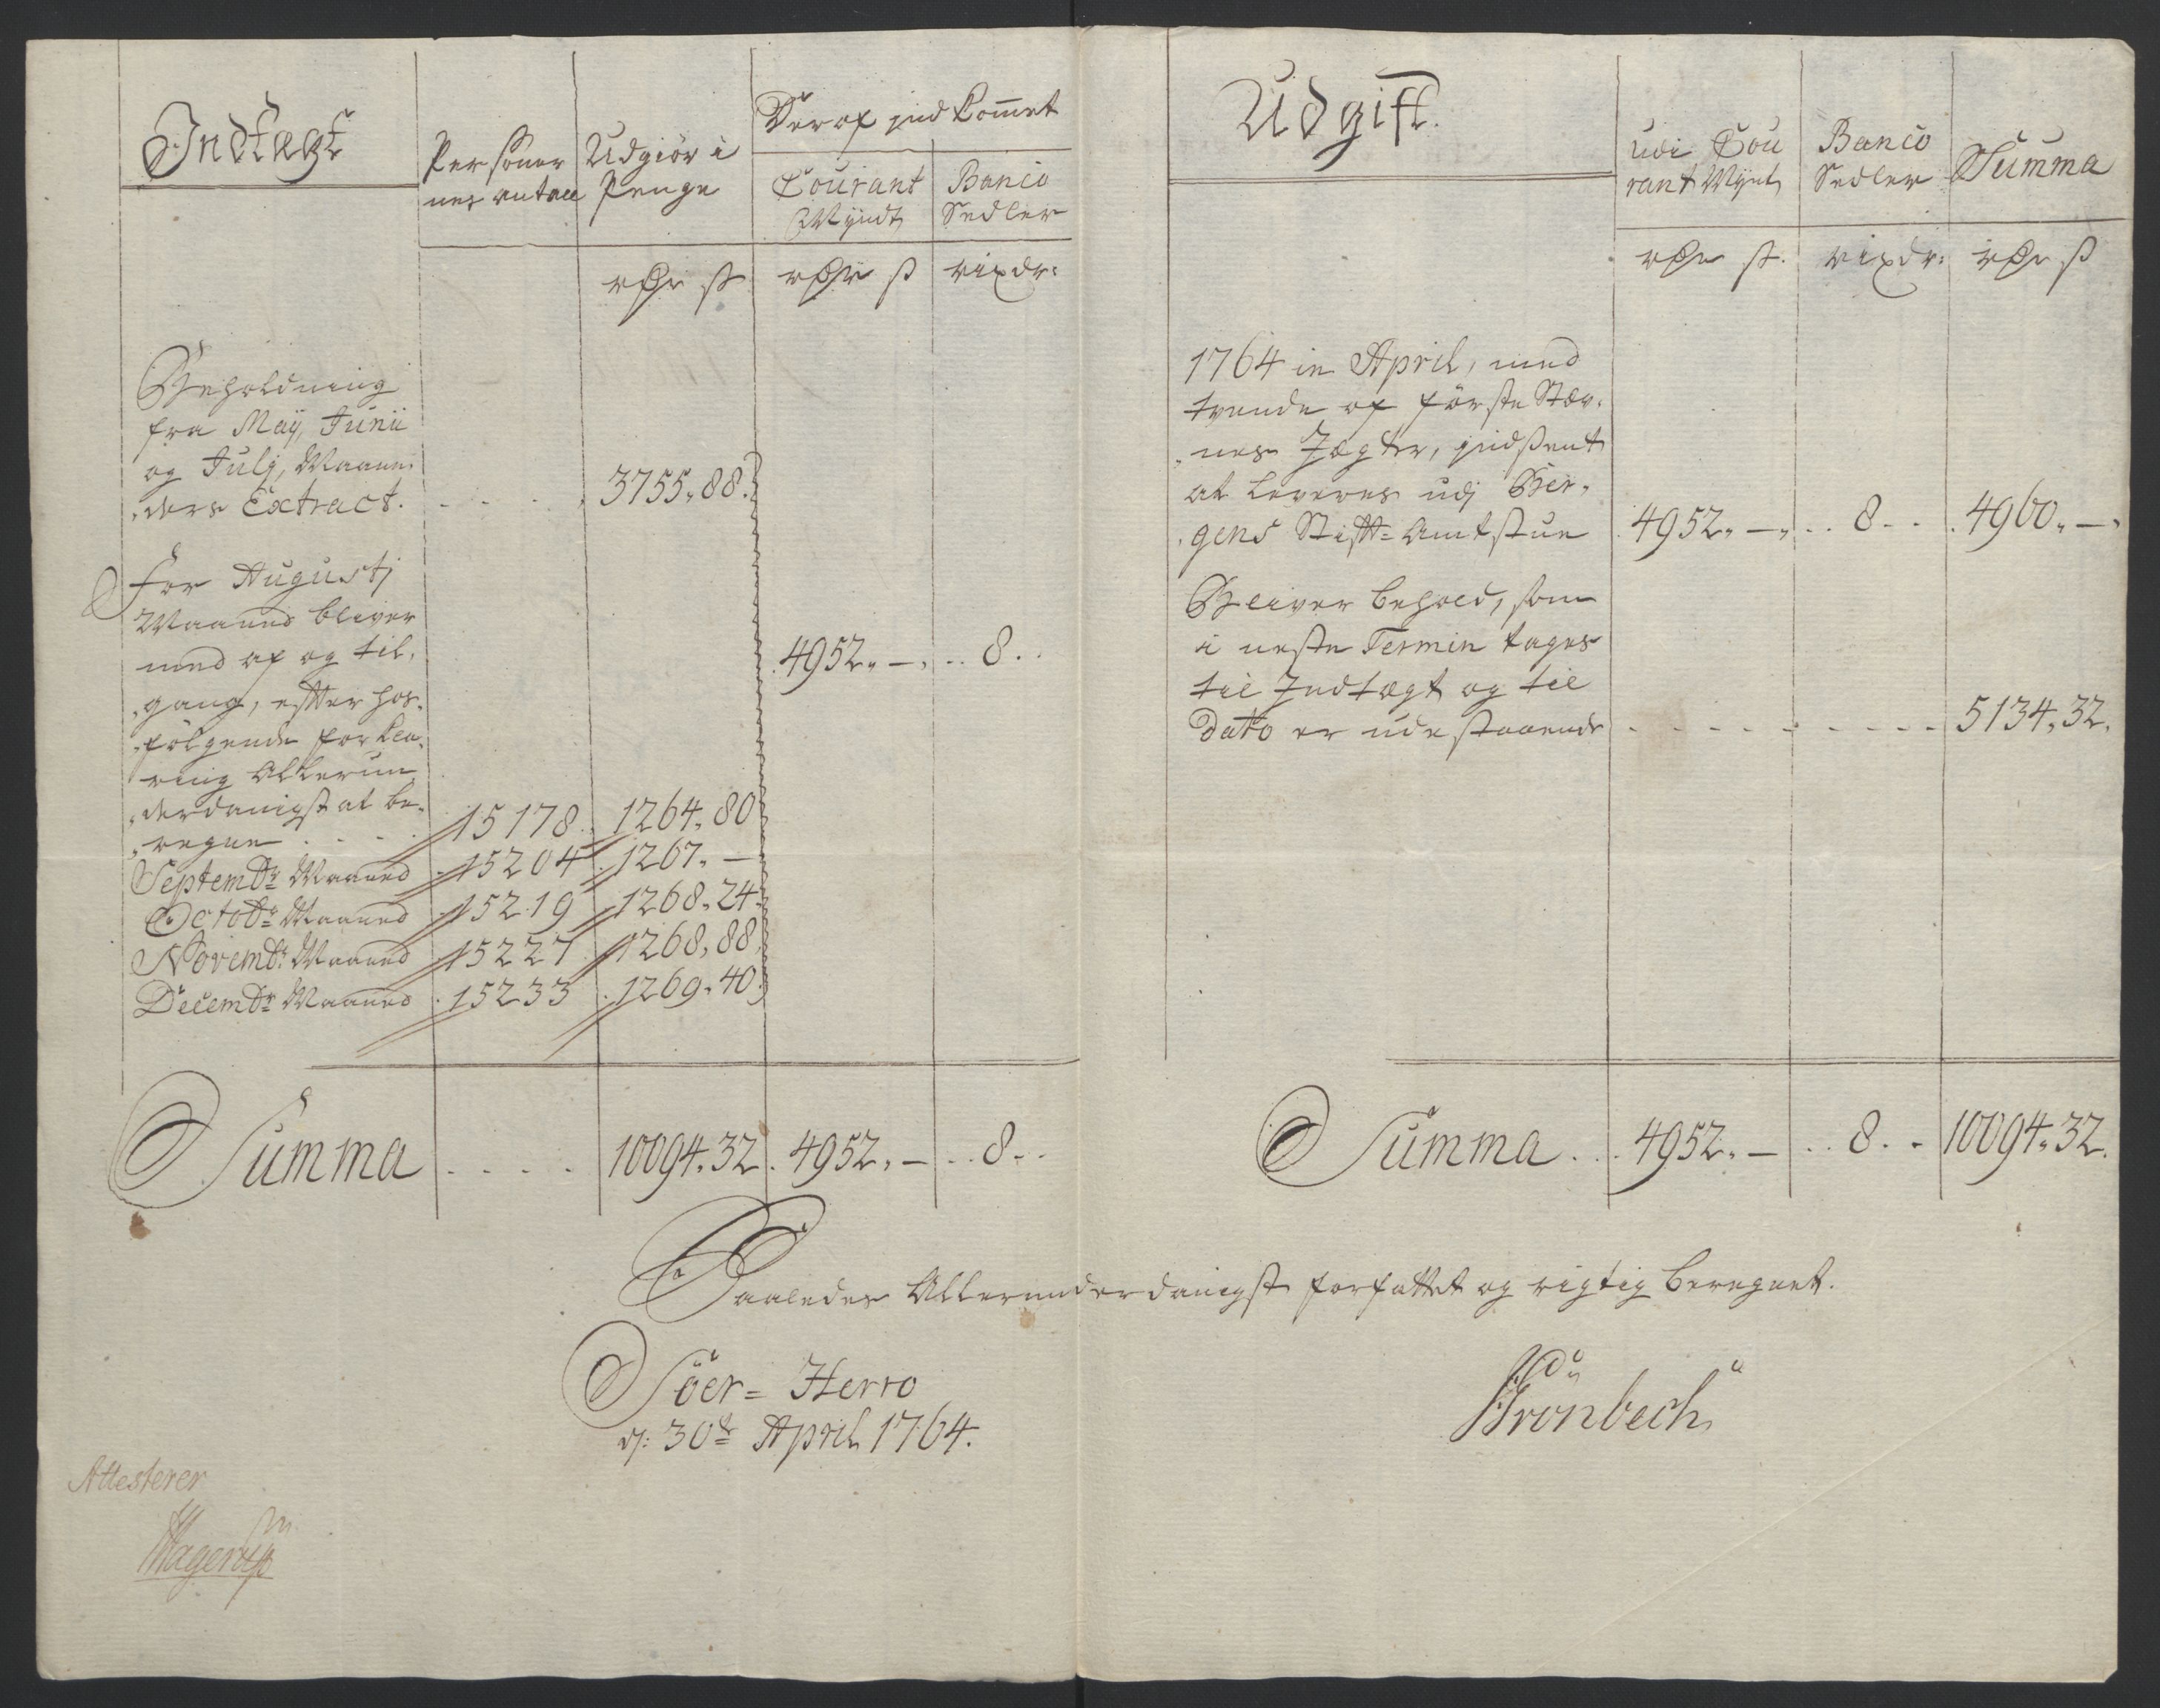 Indtægt
Personer
nes antall
Udgiör i
Penge
Deraf ind kommet
Courant
Myndt
Banco
Sedler
rdr ß
rdr ß
rixdr:
Beholdning
fra Maÿ, Junii
og Julj, Maane,
,ders Extract. . . . . 3755„88.
For Augustj
Maaned bliver
med af og til,
,gang, efter hos,
,fölgende forkla,
ring Allerun,
,derdanigst at be,
,regne . . . 15178. 1264„80
4952„ – „ . . 8. .
Septembr Maaned 15204 1267„ –
Octobr Maaned 15219 1268„24.
Novembr Maaned 15227. 1268„88.
Decembr Maaned . 15233 . 1269„40.
Summa . . . . 10094„32. 4952„ – . . 8. .
Udgift.
udi Cou
rant Mynt
Banco
Sedler
Summa
rdr ß.
rixdr:
rdr ß
1764 in April, med
tvende af förste Stæv,
,nes Jægter, indsent
at leveres udj Ber,
,gens Stift=Amtstue 4952„ – „ . . 8. . . 4960„ – „
Bliver behold, som
i neste Termin tages
til Indtægt og til
Dato er udestaaende . . . . . . . . . 5134„32.
Summa . . . 4952„ – . . 8. . 10094„32.
Saaledes Allerunderdanigst forfattet og rigtig beregnet.
Söer= Herro
d: 30te April 1764.
Brönbech
Attesterer